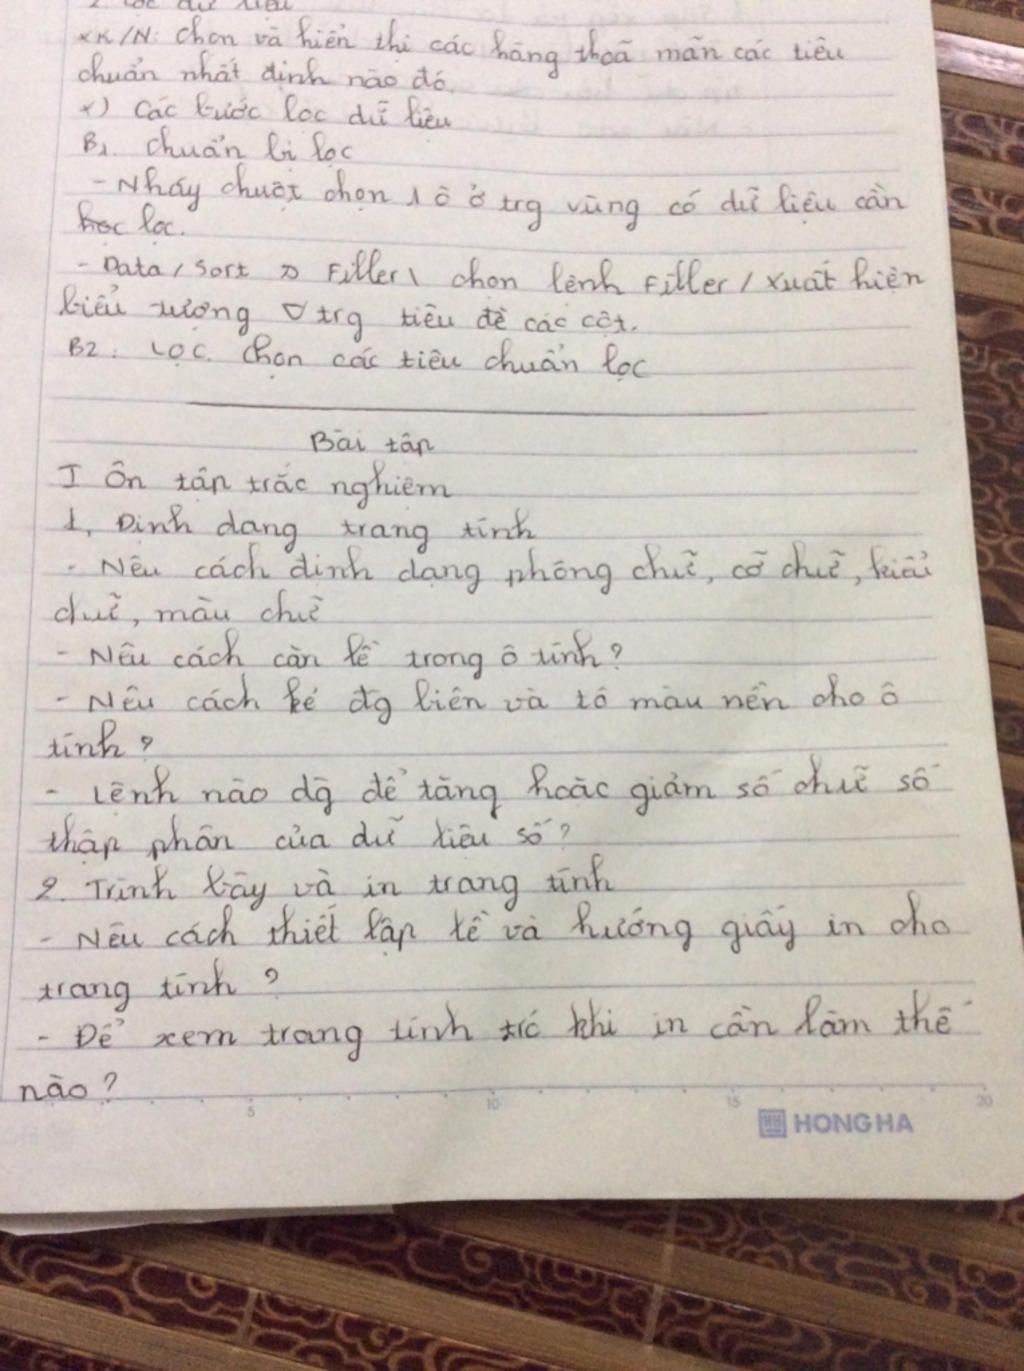 2 Lọc dữ liệu
* K/N: Chọn và hiển thị các hàng thoã mãn các tiêu
chuẩn nhất định nào đó.
*) Các bước lọc dữ liệu
B1. Chuẩn bị lọc
- Nháy chuột chọn 1 ô ở trg vùng có dữ liệu cần
lọc.
- Data / Sort Filler \ chọn lệnh Filler / Xuất hiện
biểu tượng ▽ trg tiêu đề các cột.
B2: Lọc. Chọn các tiêu chuẩn lọc
Bài tập
I Ôn tập trắc nghiệm
1, Định dạng trang tính
- Nêu cách định dạng phông chữ, cỡ chữ, kiểu
chữ, màu chữ
- Nêu cách căn lề trong ô tính?
- Nêu cách kẻ đg biên và tô màu nền cho ô
tính?
- Lệnh nào dg để tăng hoặc giảm số chữ số
thập phân của dữ liệu số?
2. Trình bày và in trang tính
- Nêu cách thiết lập lề và hướng giấy in cho
trang tính?
- Để xem trang tính trc khi in cần làm thế
nào?
5 10 15 20
HONG HA